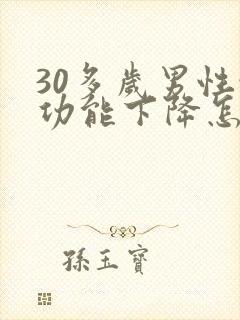 30多歲男性
功能下降怎
孫玉寶